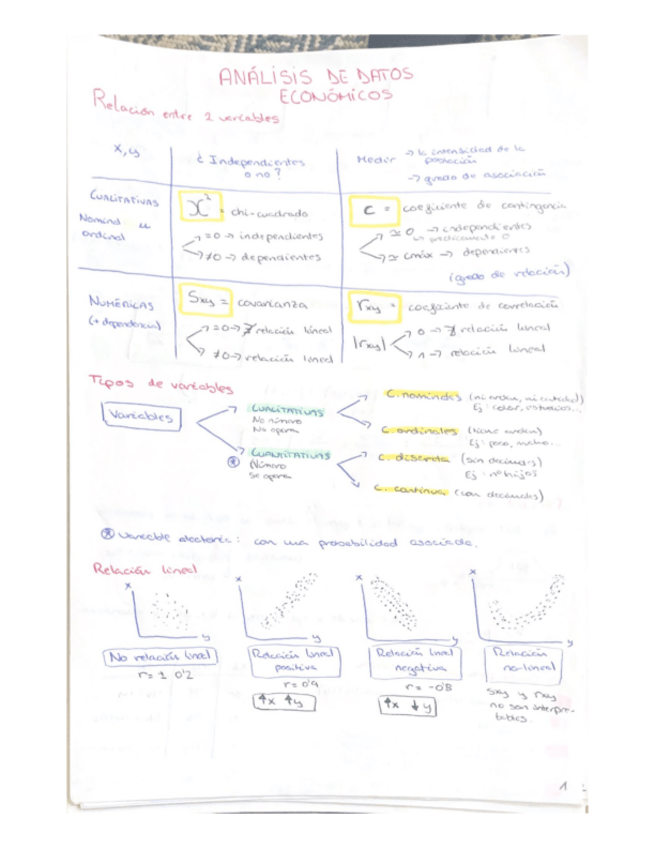 ANÁLISIS DE DATOS
ECONÓMICOS
Relación entre 2 variables
x, y
¿ Independientes
o no ?
Medir → la intensidad de la
población
→ grado de asociación
CUALITATIVAS
Nominal u
ordinal
X² = chi-cuadrado
=0 → independientes
≠0 → dependientes
C = coeficiente de contingencia
≃ 0 → independientes
≃ Cmáx → dependientes
(grado de relación)
NUMÉRICAS
(+ dependencia)
Sxy = covarianza
=0 → ∄ relación lineal
≠0 → relación lineal
rxy = coeficiente de correlación
|rxy|
0 → ∄ relación lineal
1 → relación lineal
Tipos de variables
Variables
CUALITATIVAS
No número
No opera
C. nominales (ni orden, ni
Ej: color, estudios...
C. ordinales (tiene orden)
Ej: poco, mucho...
⊛ CUANTITATIVAS
(Número
se opera
C. discreta (sin decimales)
Ej: nº hijos
C. continua (con decimales)
⊛ Variable aleatoria: con una probabilidad asociada.
Relación lineal
x
y
No relación lineal
r = ± 0'2
x
y
Relación lineal
positiva
r = 0'9
↑x ↑y
x
y
Relación lineal
negativa
r = -0'8
↑x ↓y
x
y
Relación
no-lineal
Sxy y rxy
no son interpre-
tables.
1